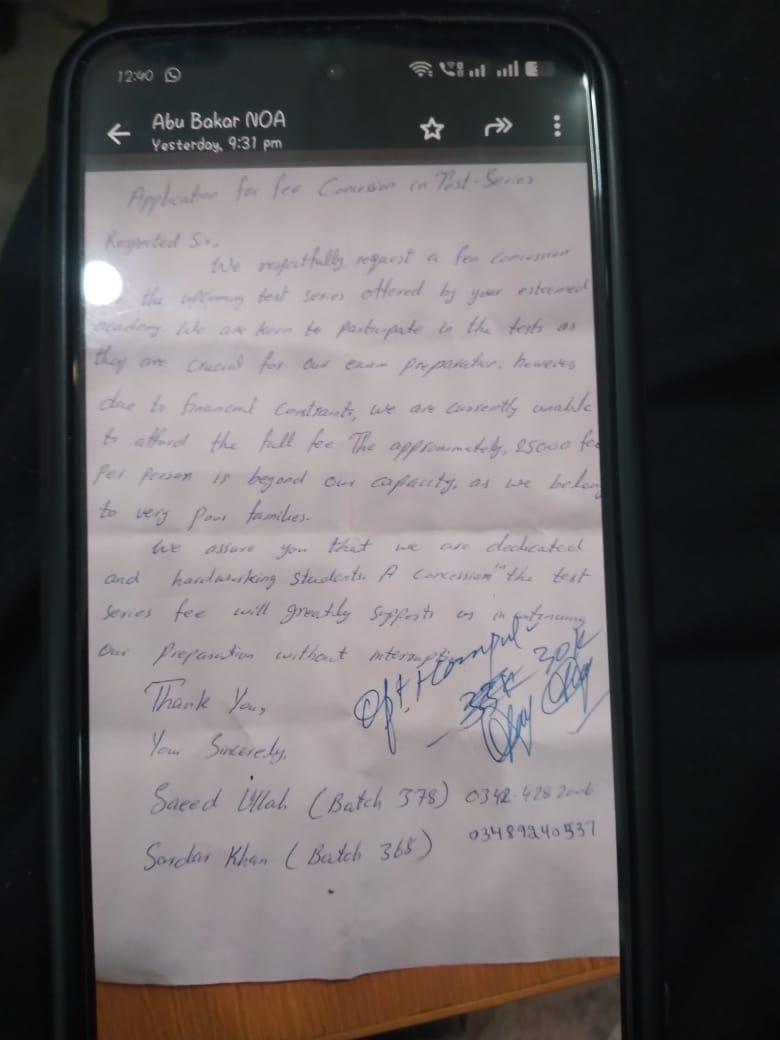 12:40
Abu Bakar NOA
Yesterday, 9:31 pm
Application for fee Concession in Test-Series
Respected Sir,
We respectfully request a fee concession
the upcoming test series offered by your esteemed
academy. We are keen to participate in the tests as
they are crucial for our exam preparation. however
due to financial constraints, we are currently unable
to afford the full fee The approximately, 25000 fee
Per Person is beyond our capacity, as we belong
to very poor families.
We assure you that we are dedicated
and hardworking students. A concession in the test
series fee will greatly supports us in continuing
our preparation without
Thank You,
Your Sincerely,
30k
Saeed Ullah (Batch 378) 0342-428
Sardar Khan (Batch 368)
03489240537